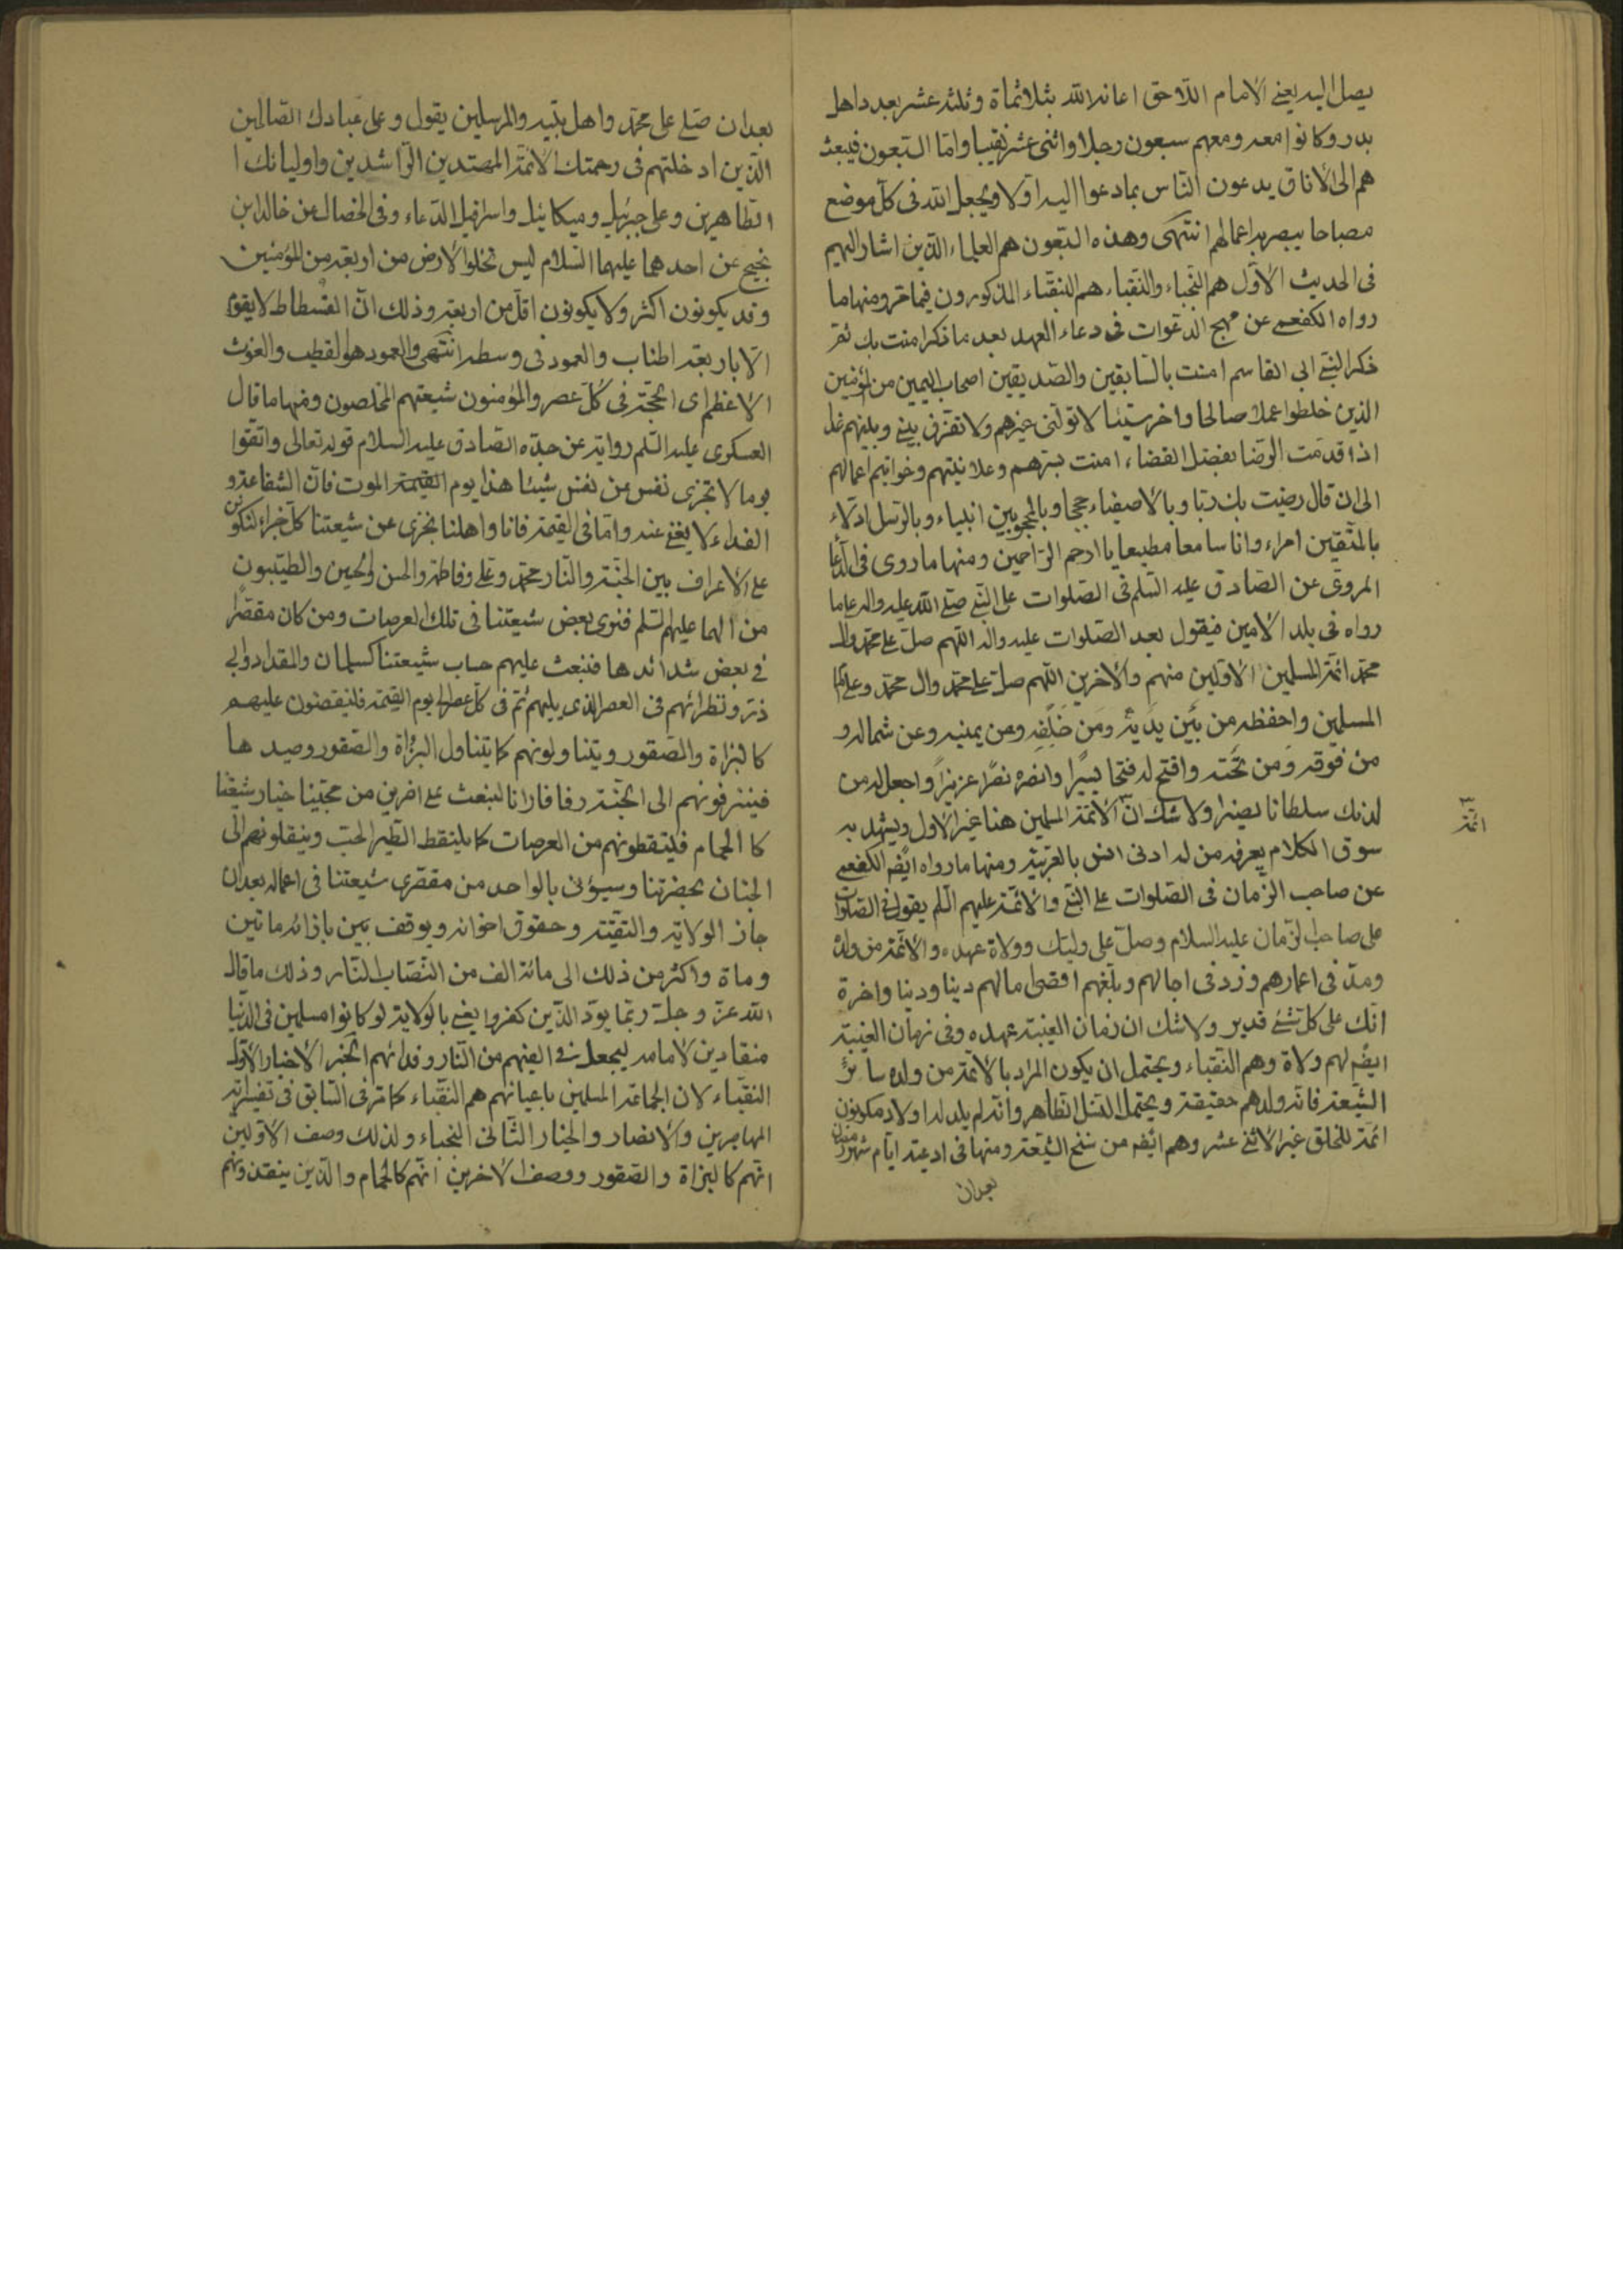 يصل اليه يعني الامام اللاحق اعانه الله بثلاثماة وثلثة عشر بعدد اهل
بدر وكانوا معه ومعهم سبعون رجلا واثنى عشر نقيبا واما السبعون فيبعث
هم الى الافاق يدعون الناس بما دعوا اليه اولا ويجعل الله في كل موضع
مصباحا يبصر به اعمالهم انتهى وهذه السبعون هم العلماء الذين اشار اليهم
في الحديث الاول هم النجباء والنقباء هم النقباء المذكورون فيما مر ومنها ما
رواه الكفعمي عن مهج الدعوات في دعاء العهد بعد ما ذكر امنت بك ثم
ذكر النبي ابي القاسم امنت بالسابقين والصديقين اصحاب اليمين من المؤمنين
الذين خلطوا عملا صالحا واخر سيئا لا تولني غيرهم ولا تفرق بيني وبينهم غدا
اذا قدمت الرضا بفضل القضاء امنت بسرهم وعلانيتهم وخواتيم اعمالهم
الى ان قال رضيت بك ربا وبالاصفياء حججا وبالمحجوبين انبياء وبالرسل ادلاء
بالمتقين امراء وانا سامعا مطيعا يا ارحم الراحمين ومنها ما روى في الدعا
المروي عن الصادق عليه السلم في الصلوات على النبي صلى الله عليه واله عاما
رواه في بلد الامين فيقول بعد الصلوات عليه واله اللهم صل على محمد وال
محمد ائمة المسلمين الاولين منهم والاخرين اللهم صل على محمد وال محمد وعلى امام
المسلمين واحفظه من بين يديه ومن خلفه ومن يمينه وعن شماله و
من فوقه ومن تحته وافتح له فتحا يسيرا وانصره نصرا عزيزا واجعل له من
لدنك سلطانا نصيرا ولا شك ان الائمة المسلمين هنا غير الاول ويشهد به
ائمة
سوق الكلام يعرفه من له ادنى انس بالعربية ومنها ما رواه ايضه الكفعمي
عن صاحب الزمان في الصلوات على النبي والائمة عليهم السلم يقول في الصلوات
على صاحب الزمان عليه السلام وصل على وليك وولاة عهده والائمة من ولده
ومد في اعمارهم وزد في اجالهم وبلغهم اقصى امالهم دينا ودنيا واخرة
انك على كل شئ قدير ولا شك ان زمان الغيبة عهده وفي زمان الغيبة
ايضه لهم ولاة وهم النقباء ويحتمل ان يكون المراد بالائمة من ولده سائر
الشيعة فانه ولدهم حقيقة ويحتمل النسل الظاهر وانه لم يلد له اولاد مكونون
ائمة للخلق غير الاثني عشر وهم ايضه من سنخ الشيعة ومنها في ادعية ايام شهر رمضان
بعد ان
بعد ان صلى على محمد واهل بيته والمرسلين يقول وعلى عبادك الصالحين
الذين ادخلتهم في رحمتك الائمة المهتدين الراشدين واوليائك ا
الطاهرين وعلى جبرئيل وميكائيل واسرافيل الدعاء وفي الخصال عن خالد بن
نجيح عن احدهما عليهما السلام ليس تخلوا الارض من اربعة من المؤمنين
وقد يكونون اكثر ولا يكونون اقل من اربعة وذلك ان الفسطاط لا يقوم
الا باربعة اطناب والعمود في وسطه انتهى والعمود هو القطب والغوث
الاعظم اي الحجة في كل عصر والمؤمنون شيعتهم المخلصون ومنها ما قال
العسكري عليه السلم رواية عن جده الصادق عليه السلام قوله تعالى واتقوا
يوما لا تجزى نفس عن نفس شيئا هذا يوم القيمة الموت فان الشفاعة و
الفداء لا يغني عنه واما في القيمة فانا واهلنا نجزى عن شيعتنا كل جزاء لنكونن
على الاعراف بين الجنة والنار محمد وعلي وفاطمة والحسن والحسين والطيبون
من الهما عليهم السلم فنرى بعض شيعتنا في تلك العرصات ومن كان مقصرا
في بعض شدائدها فنبعث عليهم حساب شيعتنا كسلمان والمقداد وابي
ذر ونظرائهم في العصر الذي يليهم ثم في كل عصر الى يوم القيمة فلينقضون عليهم
كالبزاة والصقور ويتناولونهم كما يتناول البزاة والصقور وصيدها
فيزفونهم الى الجنة زفا فانا لنبعث على اخرين من محبينا خيار شيعتنا
كالحمام فليتقطونهم من العرصات كما يلتقط الطير الحب وينقلونهم الى
الجنان بحضرتنا وسيؤتى بالواحد من مقصري شيعتنا في اعماله بعد ان
جاز الولاية والتقية وحقوق اخوانه ويوقف بين بازائه ماتين
وماة واكثر من ذلك الى مائة الف من النصاب النار وذلك ما قال
الله عز وجل ربما يود الذين كفروا يعني بالولاية لو كانوا مسلمين في الدنيا
منقادين لامامه ليجعل في الفيهم من النار وفدائهم الخبر الاخيار الاول
النقباء لان الجماعة المسلمين باعيانهم هم النقباء كما مر في السابق في تفسير اية
المهاجرين والانصار والخيار الثاني النجباء ولذلك وصف الاولين
انهم كالبزاة والصقور ووصف الاخرين انهم كالحمام والذين ينقذونهم